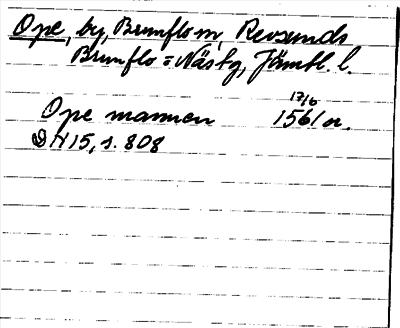 Ope, by, Brunflo sn, Revsunds
Brunflo = Näsby, Jämtl. l.
17/6
Ope mannen 1561 or.
DN 15, s. 808